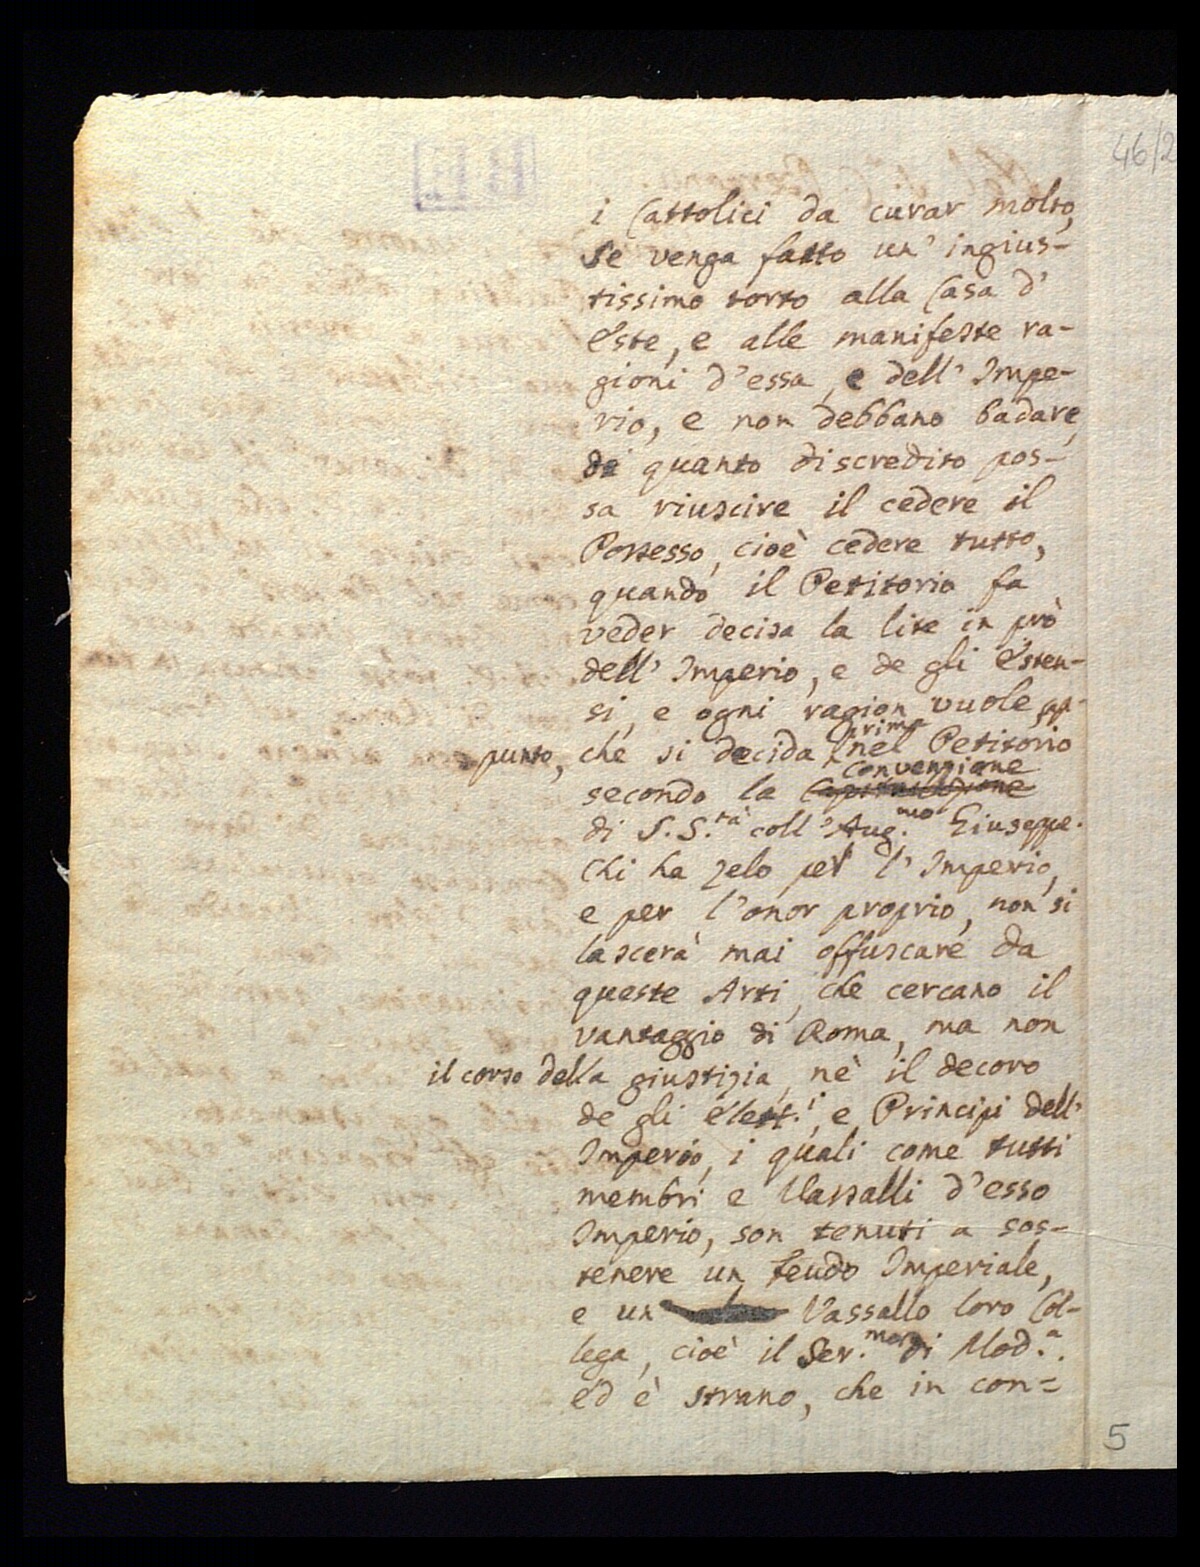 46/2
i Cattolici da curar molto,
se venga fatto un' ingius-
tissimo torto alla Casa d'
Este, e alle manifeste ra-
gioni d'essa, e dell' Impe-
rio, e non debbano badare,
di quanto discredito pos-
sa riuscire il cedere il
Possesso, cioè cedere tutto,
quando il Petitorio fa
veder decisa la lite in prò
dell' Imperio, e de gli Esten-
si, e ogni ragion vuole, ap-
punto, che si decida prima nel Petitorio
secondo la Capitolazione Convenzione
di S. S.tà coll' Aug.mo Giuseppe.
Chi ha zelo per l' Imperio,
e per l'onor proprio, non si
lascerà mai offuscare da
queste Arti, che cercano il
vantaggio di Roma, ma non
il corso della giustizia, nè il decoro
de gli Elett.i, e Principi dell'
Imperio, i quali come tutti
membri e Vassalli d'esso
Imperio, son tenuti a sos-
tenere un feudo Imperiale,
e un Vassallo loro Col-
lega, cioè il Ser.mo di Mod.a.
ed è strano, che in con=
5